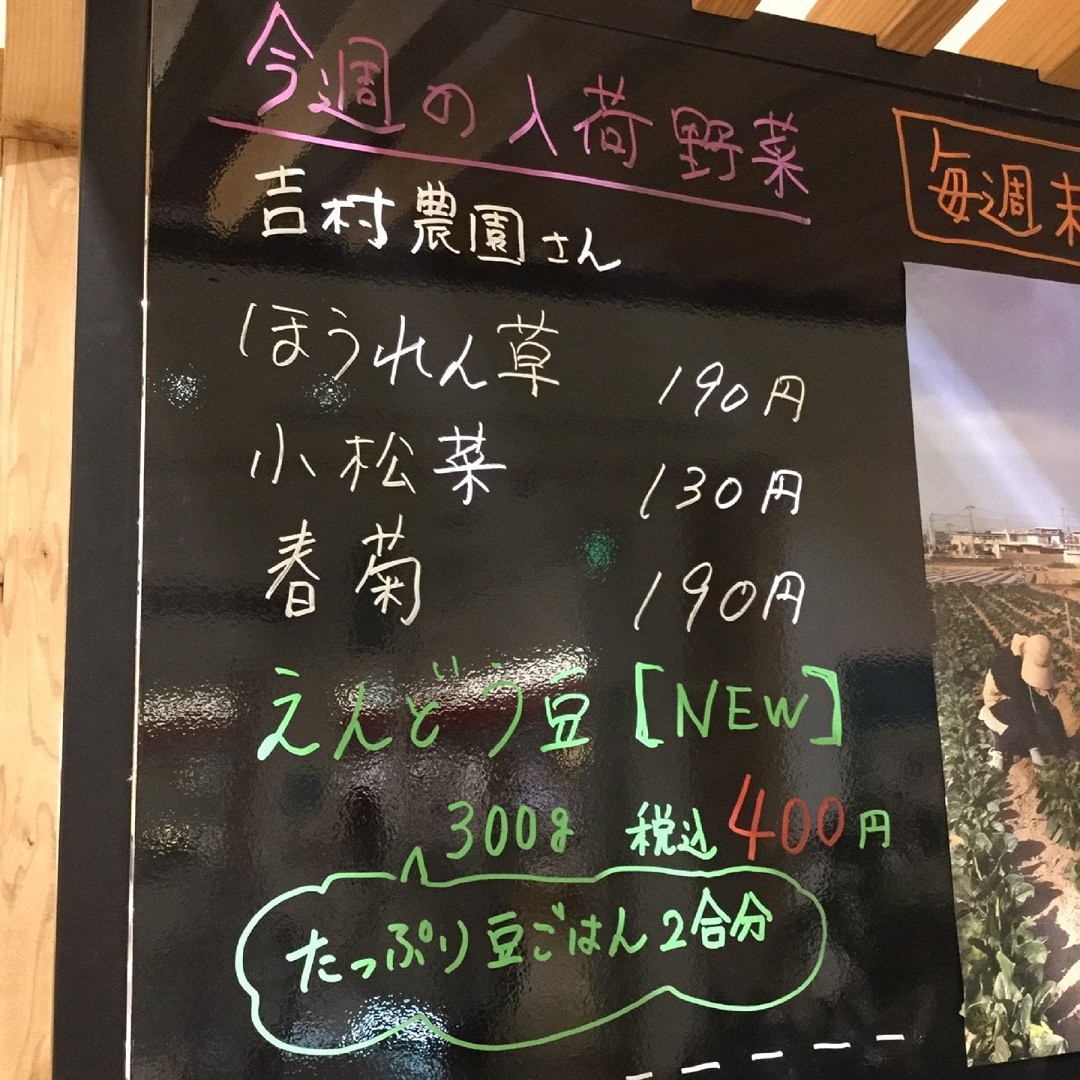 今週の入荷野菜
吉村農園さん
ほうれん草 190円
小松菜 130円
春菊 190円
えんどう豆 [NEW]
300g 税込 400円
たっぷり豆ごはん2合分
毎週末